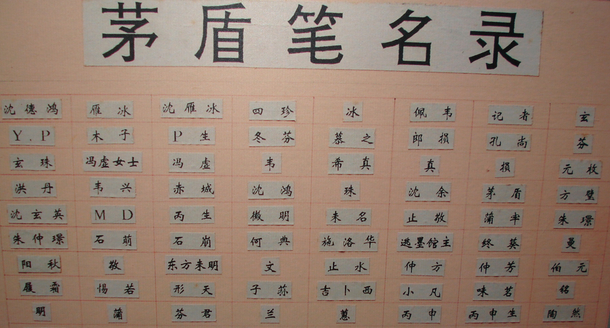 茅盾笔名录
沈德鸿 雁冰 沈雁冰 四珍 冰 佩韦 记者 玄
Y.P 木子 P生 冬芬 慕之 郎损 孔尚 芬
玄珠 冯虚女士 冯虚 韦 希真 真 损 元枚
洪丹 韦兴 赤城 沈鸿 珠 沈余 茅盾 方璧
沈玄英 M D 丙生 微明 未名 止敬 蒲牢 朱璟
朱仲璟 石萌 石崩 何典 施洛华 逃墨馆主 终葵 曼
阳秋 敬 东方未明 文 止水 仲方 仲芳 伯元
雁斋 惕若 形天 子荪 吉卜西 小凡 味茗 铭
明 蒲 芬君 兰 蕙 丙申 丙申生 陶然